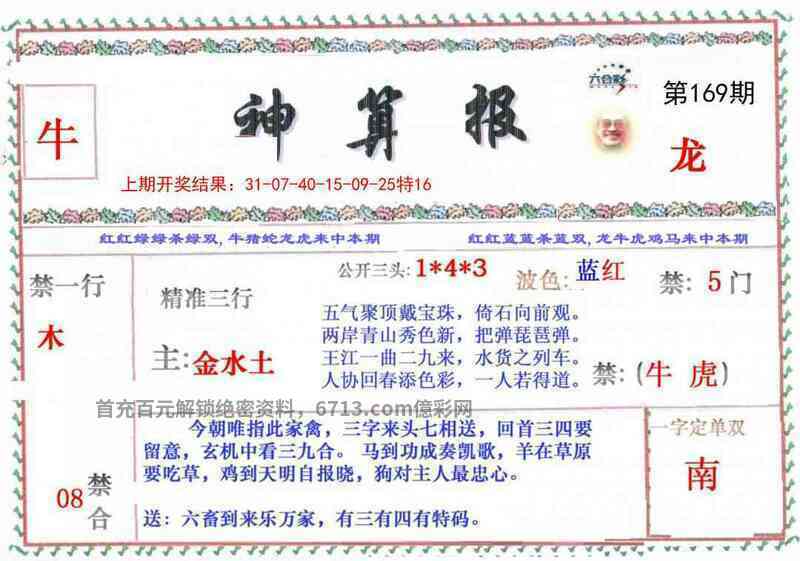 六合彩
第169期
牛
神算报
龙
上期开奖结果：31-07-40-15-09-25特16
红红绿绿杀绿双, 牛猪蛇龙虎来中本期
红红蓝蓝杀蓝双, 龙牛虎鸡马来中本期
禁一行
木
精准三行
主: 金水土
公开三头: 1*4*3
波色: 蓝红
禁: 5门
五气聚顶戴宝珠，倚石向前观。
两岸青山秀色新，把弹琵琶弹。
王江一曲二九来，水货之列车。
人协回春添色彩，一人若得道。
禁: (牛 虎)
首充百元解锁绝密资料，6713.com億彩网
08
禁合
今朝唯指此家禽，三字来头七相送，回首三四要
留意，玄机中看三九合。 马到功成奏凯歌，羊在草原
要吃草，鸡到天明自报晓，狗对主人最忠心。
送: 六畜到来乐万家，有三有四有特码。
一字定单双
南